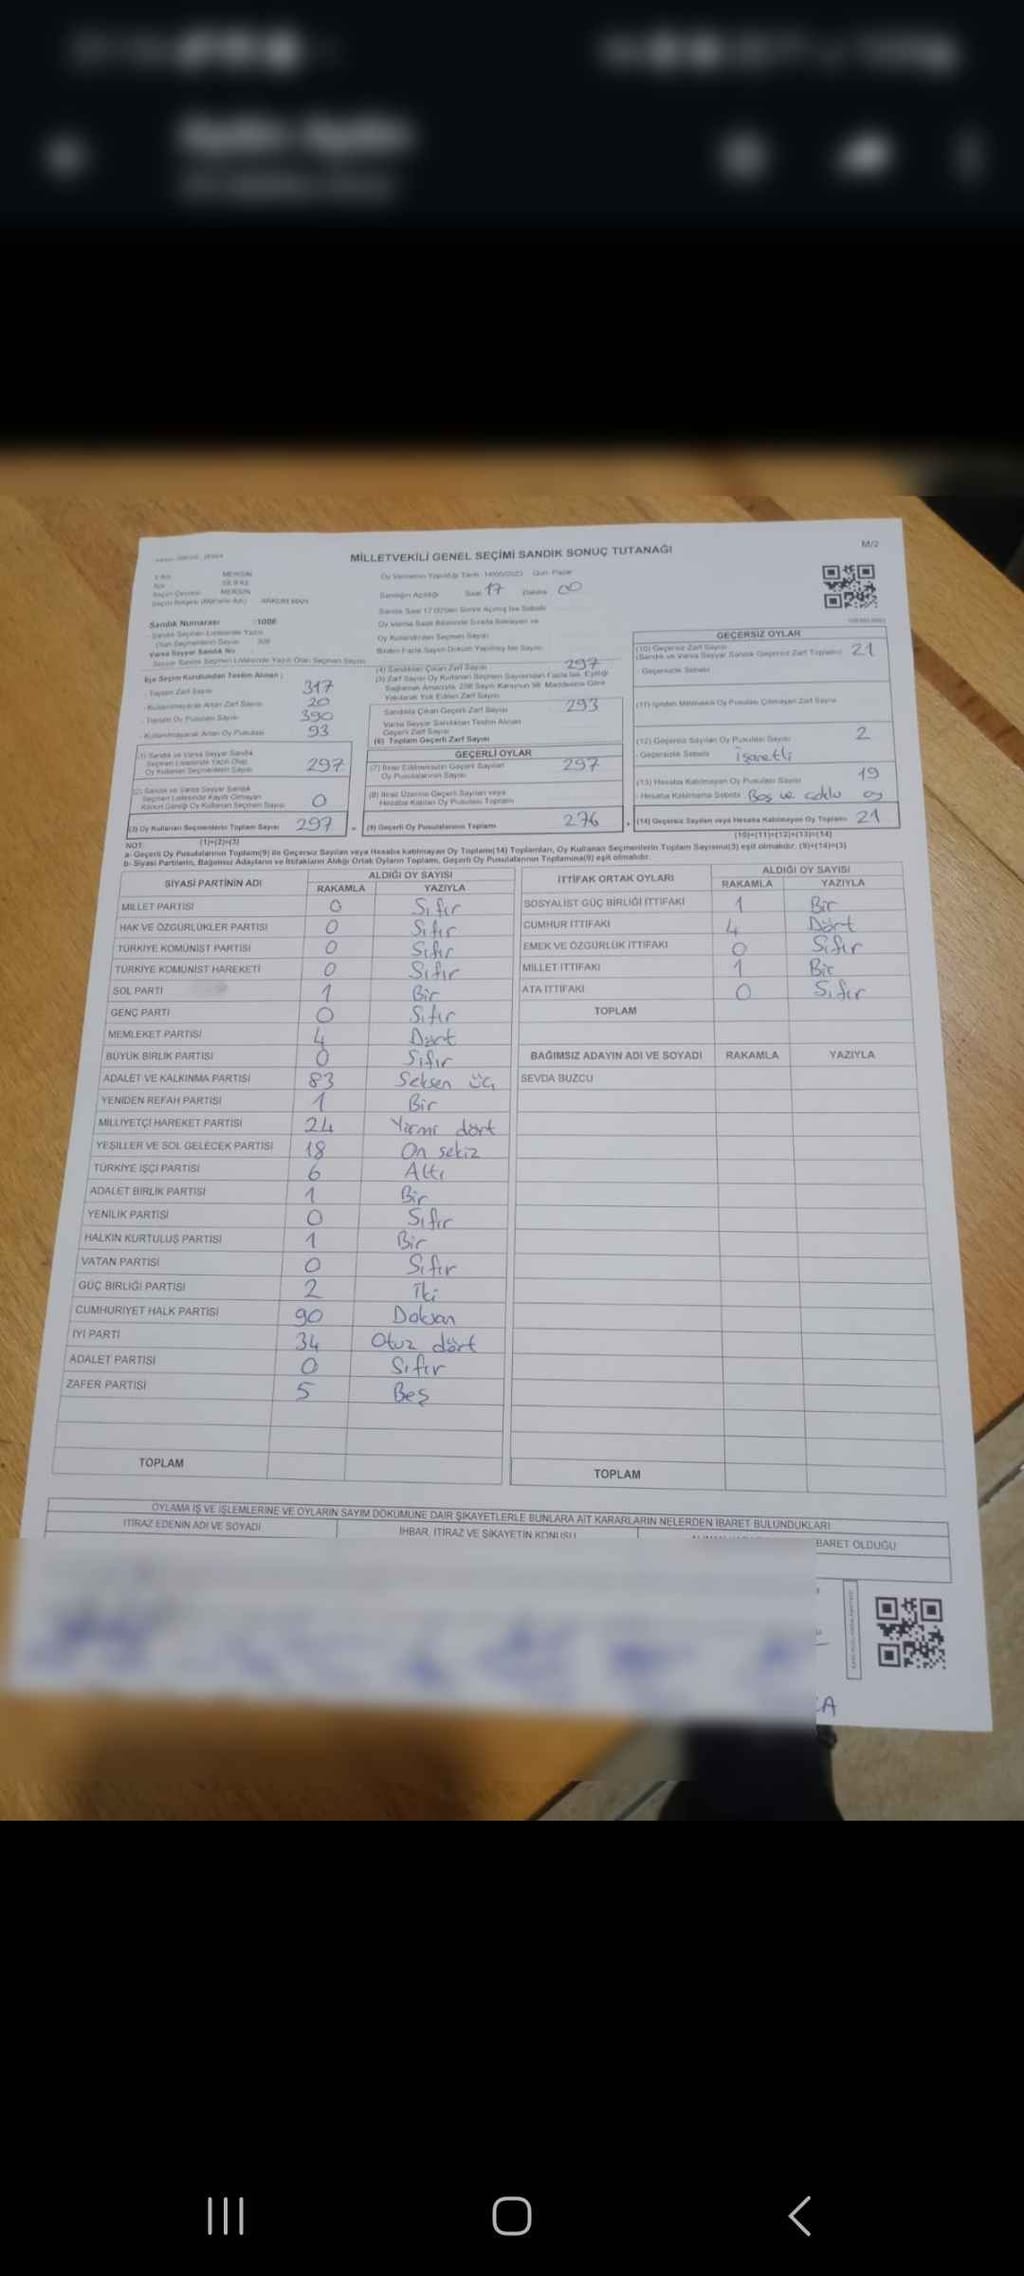 MİLLETVEKİLİ GENEL SEÇİMİ SANDIK SONUÇ TUTANAĞI
M/2
MERSİN
MERSİN
Oy Vermenin Yapıldığı Tarih 14/05/2023 Gün Pazar
Sandığın Açıldığı Saat 17 Dakika 00
Sandık Numarası 1006
Oy Kullandırılan Seçmen Sayısı
Varsa Seyyar Sandık No
İlçe Seçim Kurulundan Teslim Alınan :
- Toplam Zarf Sayısı 317
- Kullanılmayarak Artan Zarf Sayısı 20
- Toplam Oy Pusulası Sayısı 390
- Kullanılmayarak Artan Oy Pusulası 93
(1) Sandık ve Varsa Seyyar Sandık
Seçmen Listesinde Yazılı Olup
Oy Kullanan Seçmenlerin Sayısı 297
(2) Sandık ve Varsa Seyyar Sandık
Seçmen Listesinde Kayıtlı Olmayan
Kanun Gereği Oy Kullanan Seçmen Sayısı 0
(3) Oy Kullanan Seçmenlerin Toplam Sayısı 297
(1)+(2)=(3)
(4) Sandıktan Çıkan Zarf Sayısı 297
Sandıkta Çıkan Geçerli Zarf Sayısı 293
Varsa Seyyar Sandıktan Teslim Alınan
Geçerli Zarf Sayısı
(6) Toplam Geçerli Zarf Sayısı
GEÇERLİ OYLAR
(7) İtiraz Edilmeksizin Geçerli Sayılan
Oy Pusulalarının Sayısı 297
(8) İtiraz Üzerine Geçerli Sayılan veya
Hesaba Katılan Oy Pusulası Toplamı
(9) Geçerli Oy Pusulalarının Toplamı 276
GEÇERSİZ OYLAR
(10) Geçersiz Zarf Sayısı
(Sandık ve Varsa Seyyar Sandık Geçersiz Zarf Toplamı) 21
- Geçersizlik Sebebi
(12) Geçersiz Sayılan Oy Pusulası Sayısı 2
- Geçersizlik Sebebi İşaretli
(13) Hesaba Katılmayan Oy Pusulası Sayısı 19
- Hesaba Katılmama Sebebi Boş ve çoklu oy
(14) Geçersiz Sayılan veya Hesaba Katılmayan Oy Toplamı 21
(10)+(11)+(12)+(13)=(14)
NOT:
a- Geçerli Oy Pusulalarının Toplamı(9) ile Geçersiz Sayılan veya Hesaba katılmayan Oy Toplamı(14) Toplamları, Oy Kullanan Seçmenlerin Toplam Sayısına(3) eşit olmalıdır. (9)+(14)=(3)
b- Siyasi Partilerin, Bağımsız Adayların ve İttifakların Aldığı Ortak Oyların Toplamı, Geçerli Oy Pusulalarının Toplamına(9) eşit olmalıdır.
SİYASİ PARTİNİN ADI ALDIĞI OY SAYISI
RAKAMLA YAZIYLA
MİLLET PARTİSİ 0 Sıfır
HAK VE ÖZGÜRLÜKLER PARTİSİ 0 Sıfır
TÜRKİYE KOMÜNİST PARTİSİ 0 Sıfır
TÜRKİYE KOMÜNİST HAREKETİ 0 Sıfır
SOL PARTİ 1 Bir
GENÇ PARTİ 0 Sıfır
MEMLEKET PARTİSİ 4 Dört
BÜYÜK BİRLİK PARTİSİ 0 Sıfır
ADALET VE KALKINMA PARTİSİ 83 Seksen üç
YENİDEN REFAH PARTİSİ 1 Bir
MİLLİYETÇİ HAREKET PARTİSİ 24 Yirmi dört
YEŞİLLER VE SOL GELECEK PARTİSİ 18 On sekiz
TÜRKİYE İŞÇİ PARTİSİ 6 Altı
ADALET BİRLİK PARTİSİ 1 Bir
YENİLİK PARTİSİ 0 Sıfır
HALKIN KURTULUŞ PARTİSİ 1 Bir
VATAN PARTİSİ 0 Sıfır
GÜÇ BİRLİĞİ PARTİSİ 2 İki
CUMHURİYET HALK PARTİSİ 90 Doksan
İYİ PARTİ 34 Otuz dört
ADALET PARTİSİ 0 Sıfır
ZAFER PARTİSİ 5 Beş
TOPLAM
İTTİFAK ORTAK OYLARI ALDIĞI OY SAYISI
RAKAMLA YAZIYLA
SOSYALİST GÜÇ BİRLİĞİ İTTİFAKI 1 Bir
CUMHUR İTTİFAKI 4 Dört
EMEK VE ÖZGÜRLÜK İTTİFAKI 0 Sıfır
MİLLET İTTİFAKI 1 Bir
ATA İTTİFAKI 0 Sıfır
TOPLAM
BAĞIMSIZ ADAYIN ADI VE SOYADI RAKAMLA YAZIYLA
SEVDA BUZCU
TOPLAM
OYLAMA İŞ VE İŞLEMLERİNE VE OYLARIN SAYIM DÖKÜMÜNE DAİR ŞİKAYETLERLE BUNLARA AİT KARARLARIN NELERDEN İBARET BULUNDUKLARI
İTİRAZ EDENİN ADI VE SOYADI İHBAR, İTİRAZ VE ŞİKAYETİN KONUSU BARET OLDUĞU